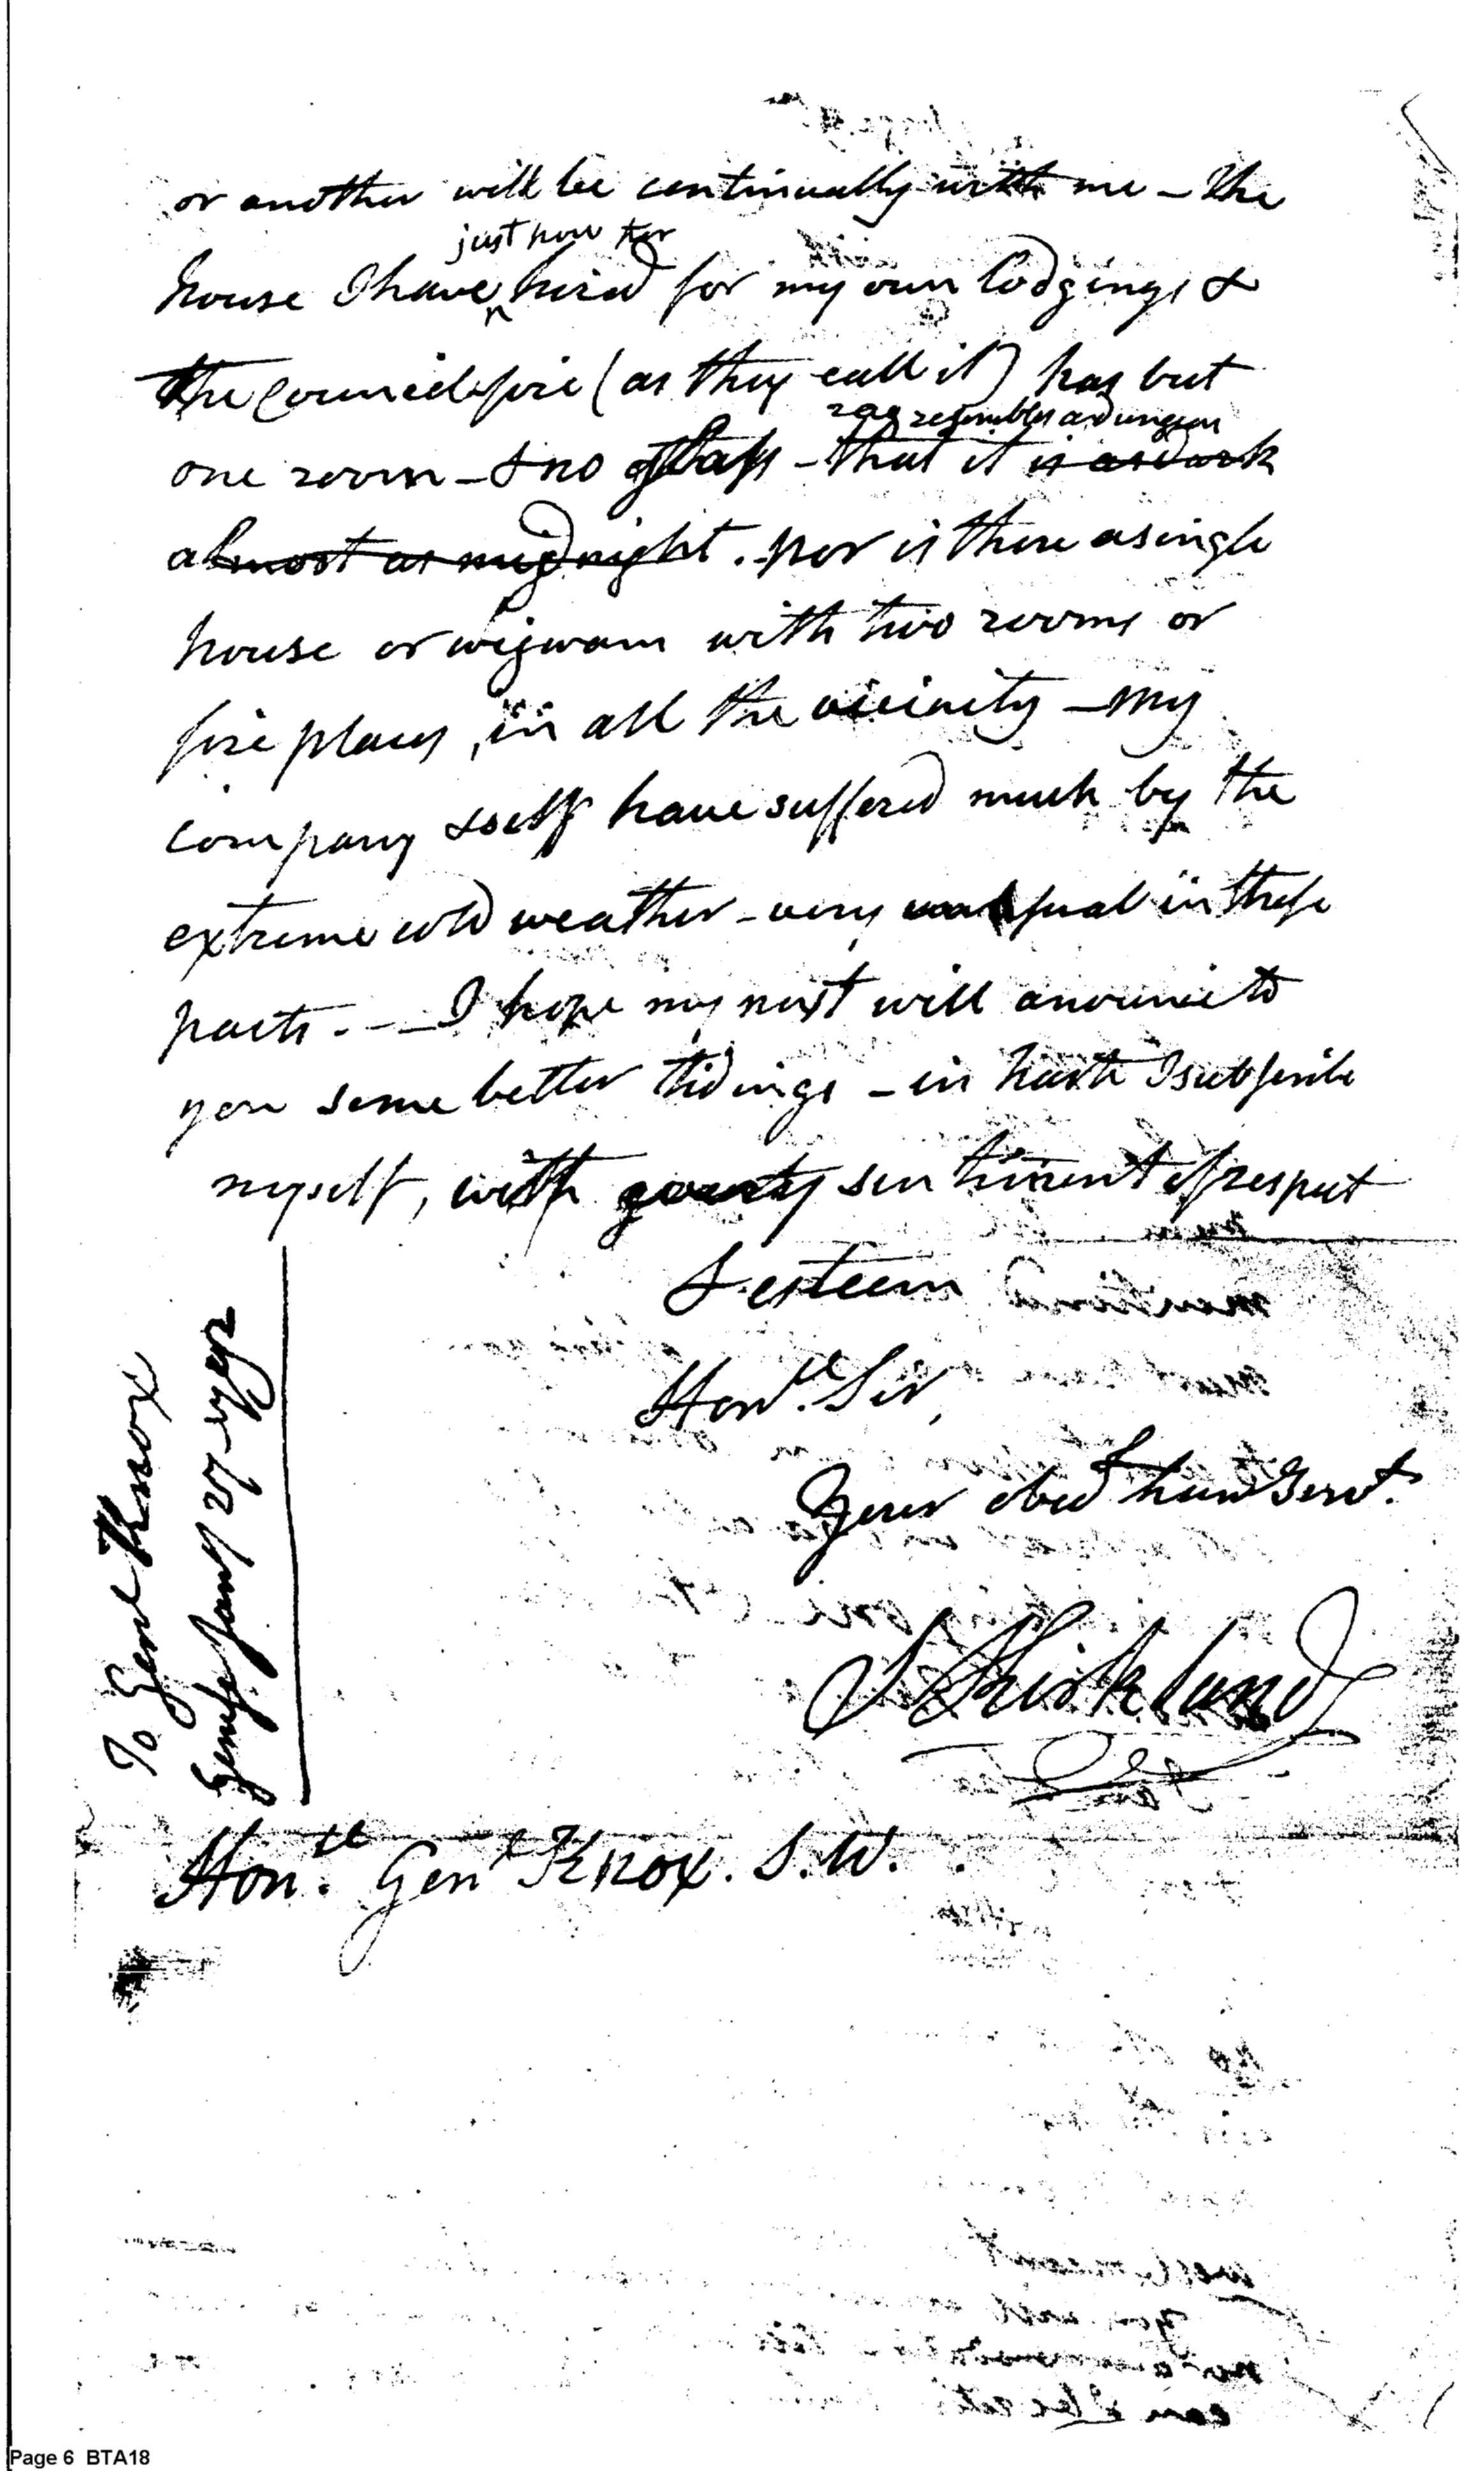 or another will be continually with me – the
just now
house I have hired for my own lodgings &
the Councilfire (as they call it) has but
resembles a dungeon
one room – & no glass – that it is as dark
almost as midnight. nor is there a single
house or wigwam with two rooms or
fire places, in all the vicinity – My
company & self have suffered much by the
extreme cold weather – very unusual in these
parts. – – I hope my next will anounce to
you some better tidings – in haste I subscribe
myself, with sentiment of respect
& esteem
Honle. Sir,
Your obedt humb Servt.
S Kirkland
To Genl Knox
Genesee Jany 27
Honle. Genl Knox. S.W.
Page 6 BTA18